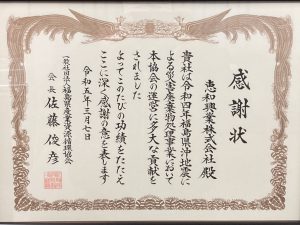 感謝状
恵和興業株式会社 殿
貴社は令和四年福島県沖地震に
よる災害廃棄物処理事業において
本協会の運営に多大な貢献を
されました
よってこのたびの功績をたたえ
ここに深く感謝の意を表します
令和五年三月七日
一般社団法人福島県産業資源循環協会
会長 佐藤俊彦